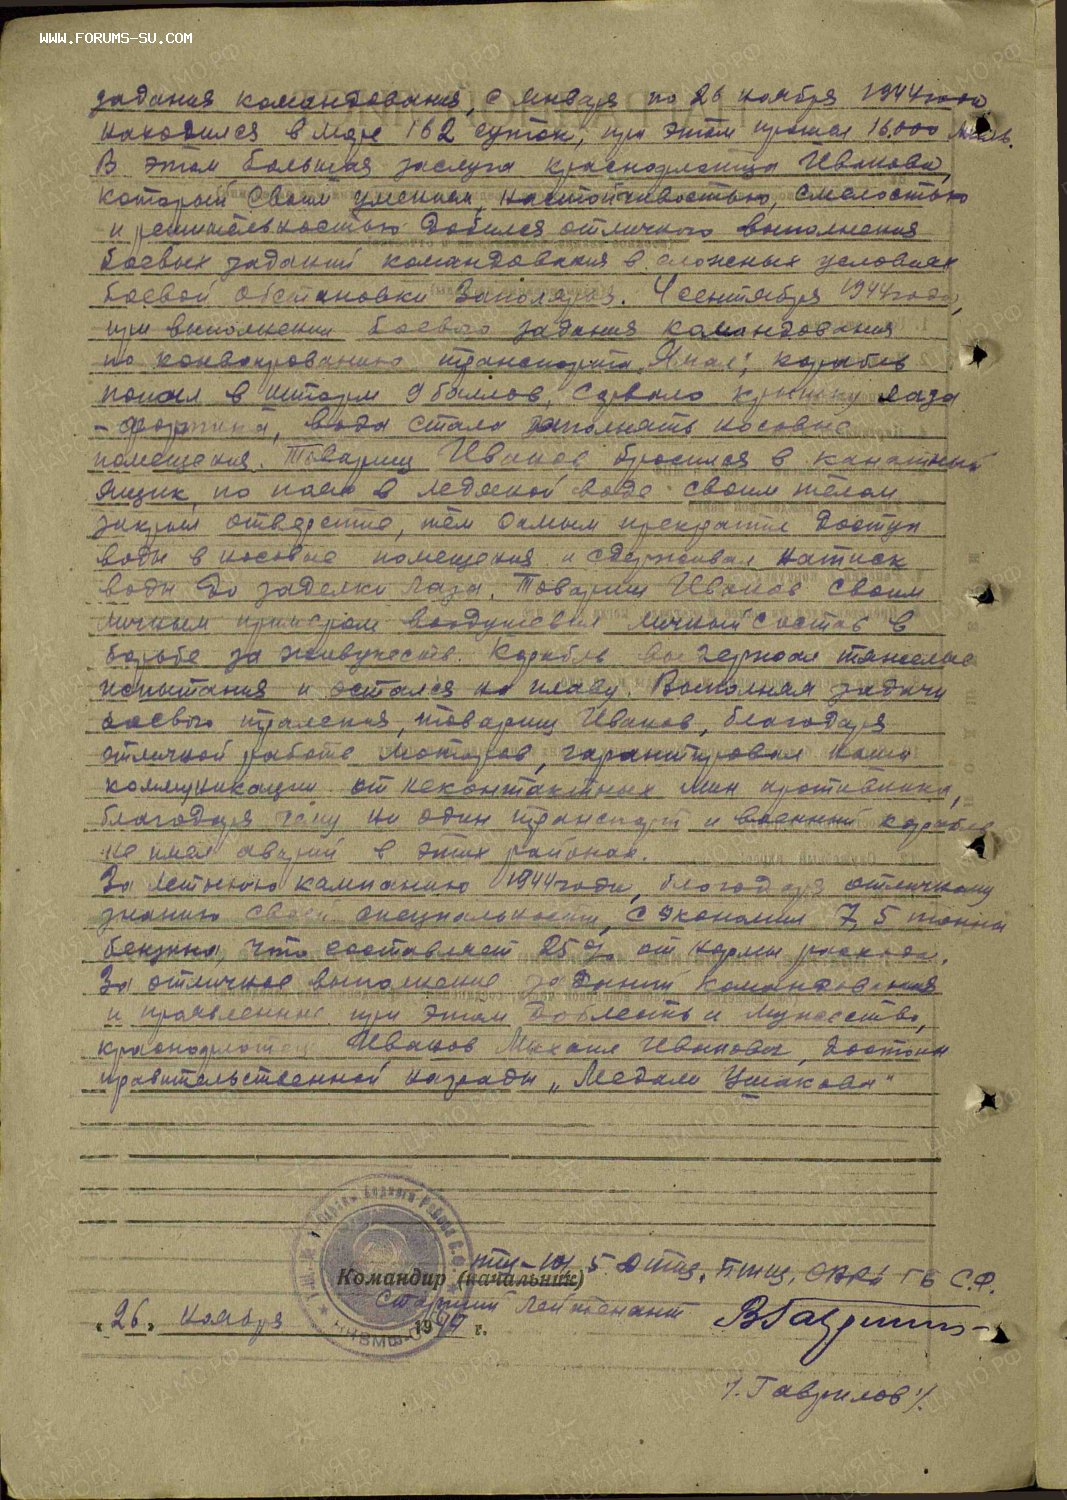 WWW.FORUMS-SU.COM
задания командования, с января по 26 ноября 1944 года
находился в море 162 суток, при этом прошел 16.000 миль.
В этом большая заслуга краснофлотца Иванова,
который своим умением, настойчивостью, смелостью
и решительностью добился отличного выполнения
боевых заданий командования в сложных условиях
боевой обстановки Заполярья. 4 сентября 1944 года,
при выполнении боевого задания командования
по конвоированию транспорта „Ямал", корабль
попал в шторм 9 баллов, сорвало крышку лаза
- форпика, вода стала заполнять носовые
помещения. Товарищ Иванов бросился в канатный
ящик, по пояс в ледяной воде своим телом
закрыл отверстие, тем самым прекратив доступ
воды в носовые помещения и сдерживал натиск
воды до заделки лаза. Товарищ Иванов своим
личным примером воодушевил личный состав в
борьбе за живучесть. Корабль выдержал тяжелые
испытания и остался на плаву. Выполняя задачи
боевого траления, товарищ Иванов, благодаря
отличной работе моторов, гарантировал наши
коммуникации от неконтактных мин противника,
благодаря чему ни один транспорт и военный корабль
не имел аварий в этих районах.
За летнюю кампанию 1944 года, благодаря отличному
знанию своей специальности, сэкономил 7,5 тонны
бензина, что составляет 25% от нормы расхода.
За отличное выполнение заданий командования
и проявленные при этом доблесть и мужество,
краснофлотец Иванов Михаил Иванович, достоин
правительственной награды „Медали Ушакова"
Командир (начальник) 5 ОВРа ГБ С.Ф.
Старший лейтенант
„26" ноября 1944 г.
/. Гаврилов /.